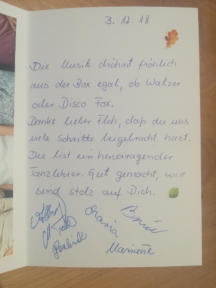 3. 12. 18
Die Musik dröhnt fröhlich
aus der Box egal, ob Walzer
oder Disco Fox.
Danke lieber Floh, daß du uns
viele Schritte beigebracht hast.
Du bist ein hervorragender
Tanzlehrer. Gut gemacht, wir
sind stolz auf Dich.